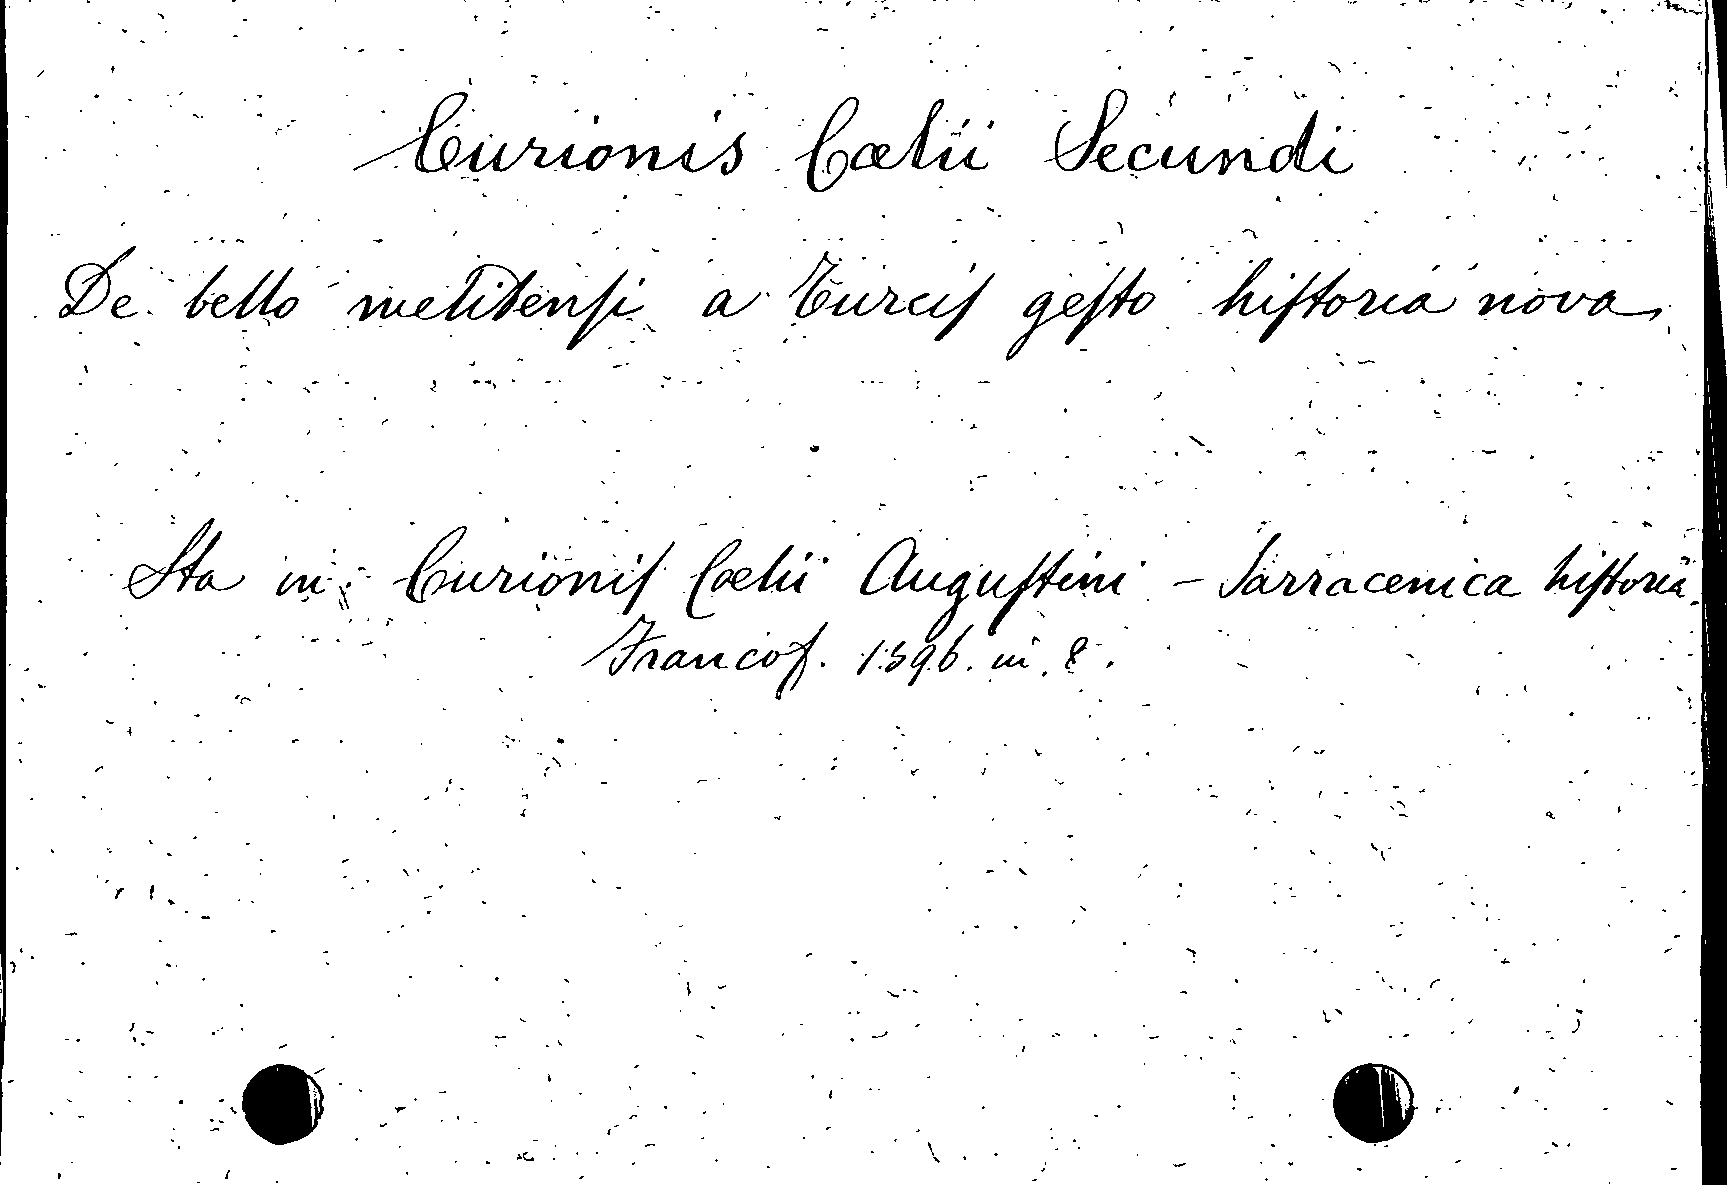 Curionis Cœlii Secundi
De bello melitensi a Turcis gesto historia nova
Sta in Curionis Cœlii Augustini - Sarracenica historia.
Francof. 1596. in 8.